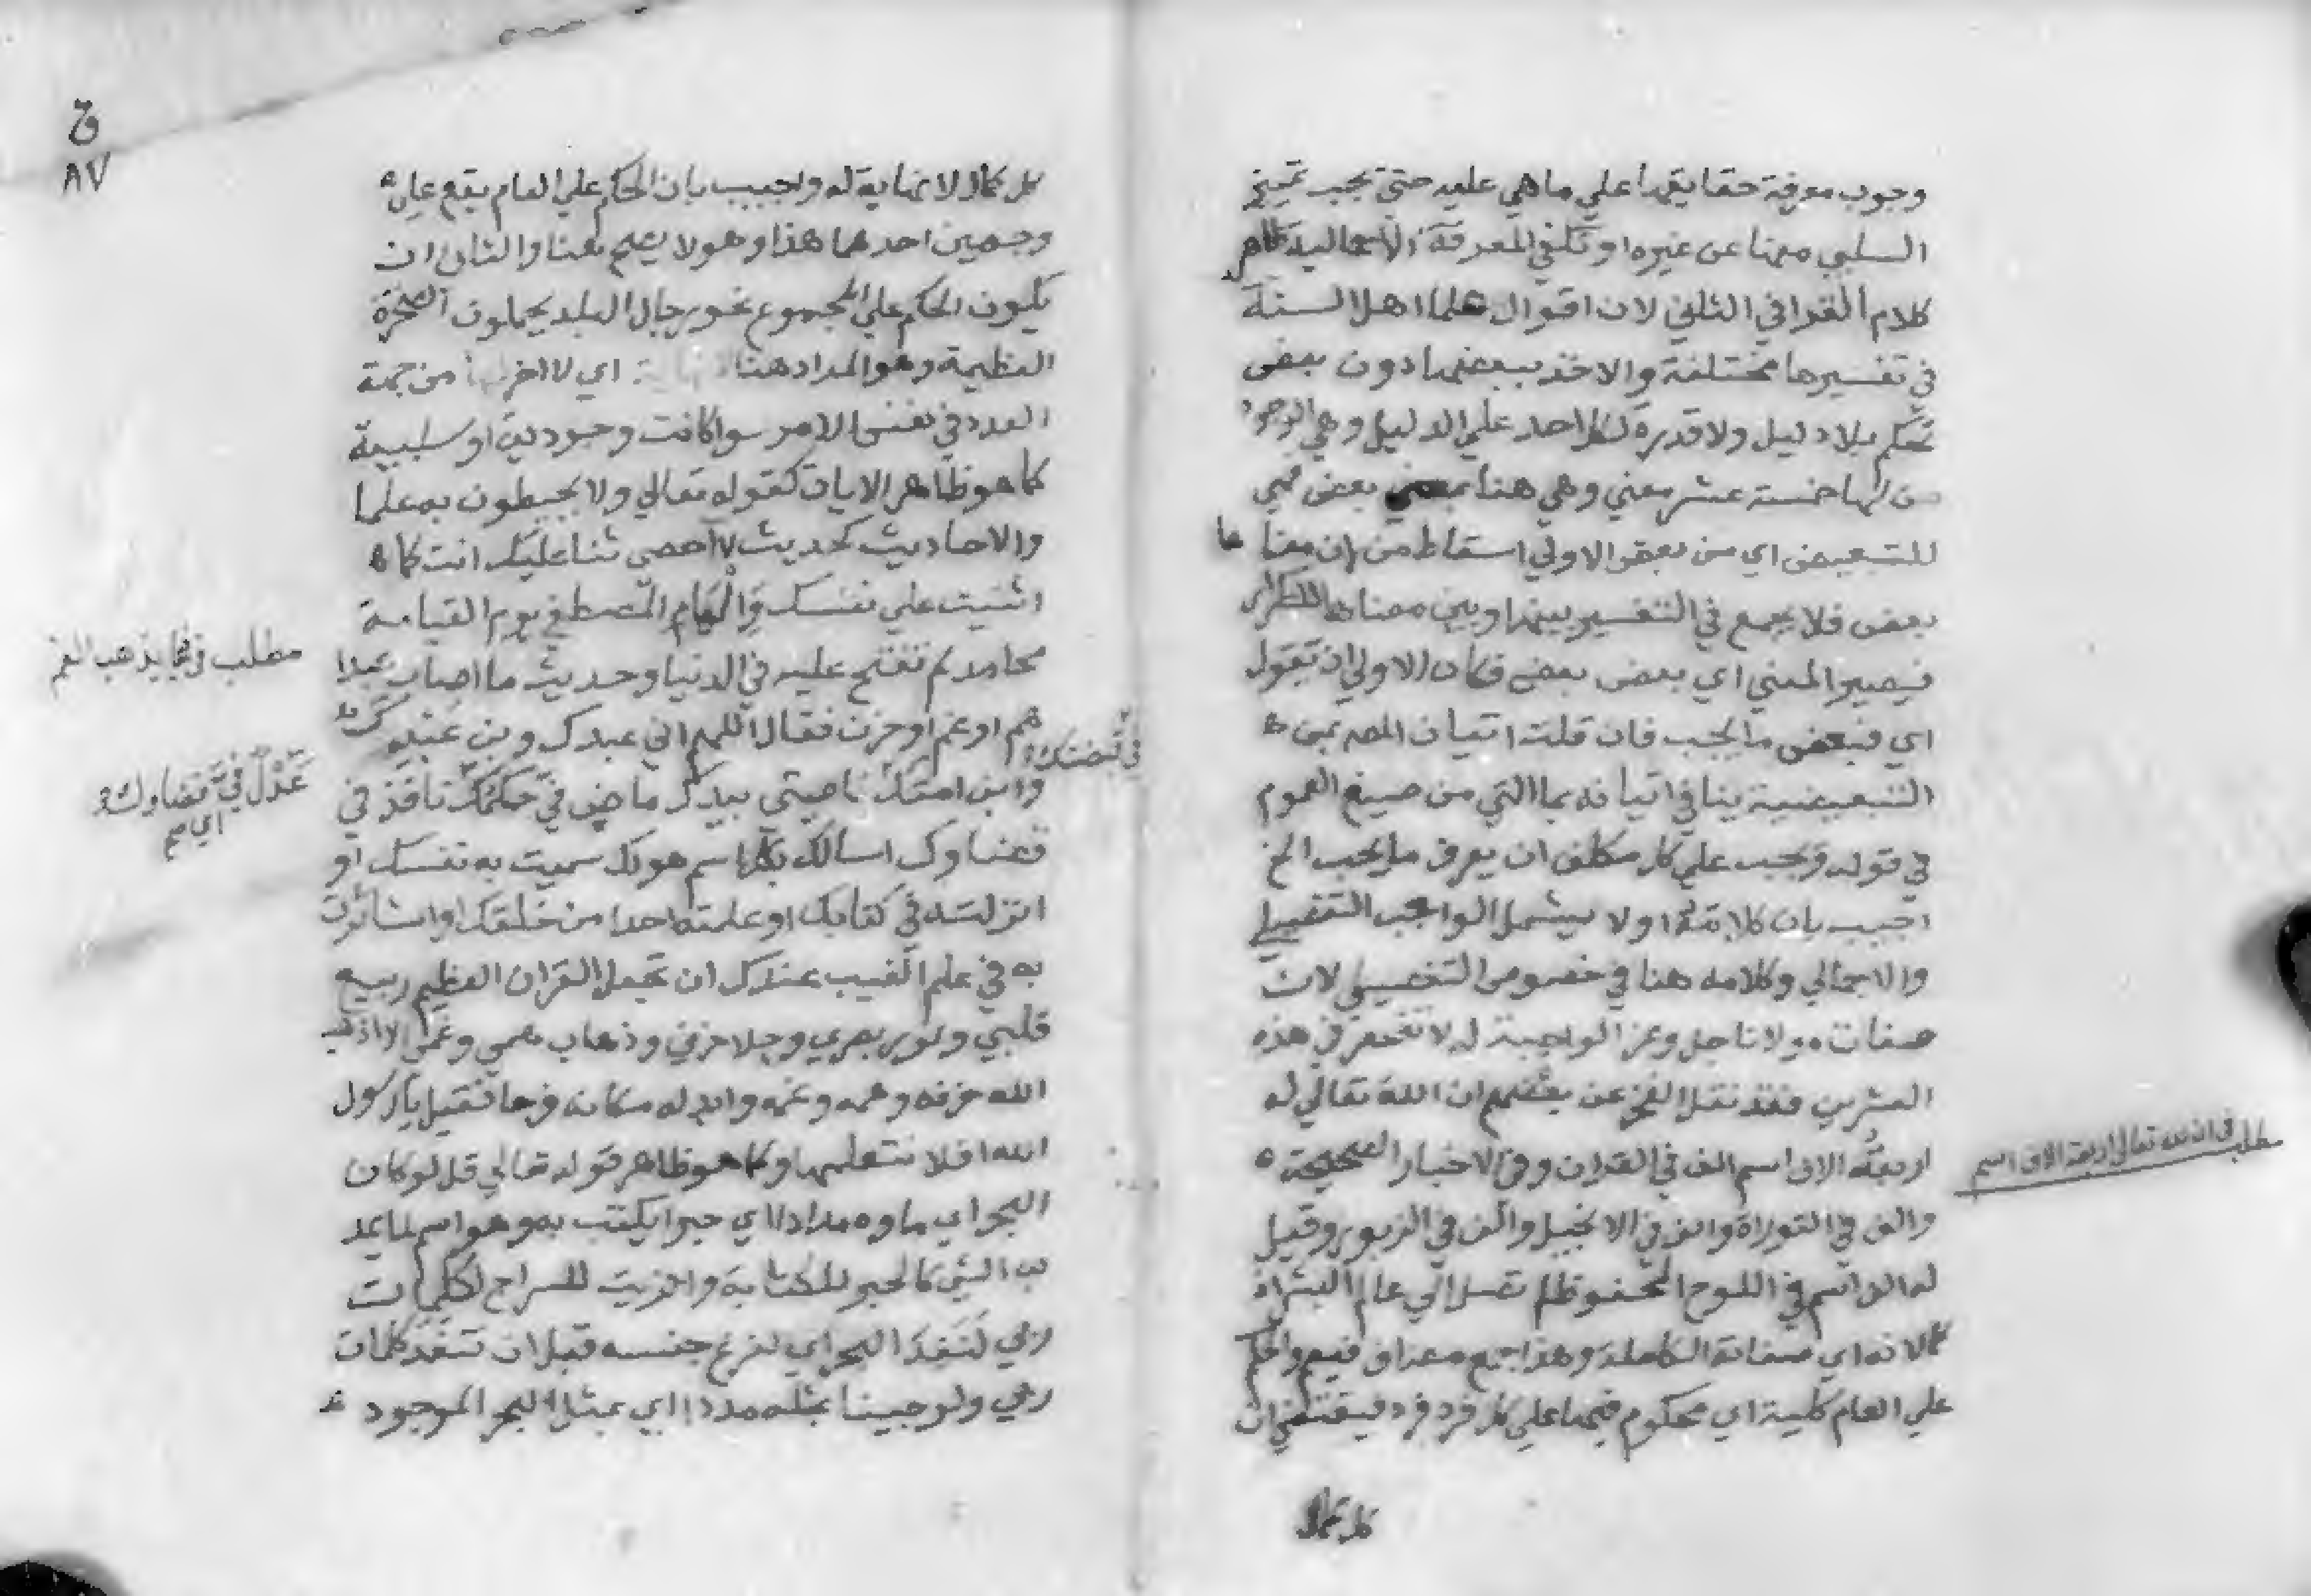 وجوب معرفة حقايقها علي ماهي عليه حتي يجب تمييز
السلبي منها عن غيره او تكفي المعرفة الاجمالية ظاهر
كلام القرافي الثاني لان اقوال علما اهل السنة
في تفسيرها مختلفة والاخذ ببعضها دون بعض
تحكم بلا دليل ولا قدرة لكل احد علي الدليل وهي الوجوه
من لها خمسة عشر معني وهي هنا بمعني بعض فهي
للتبعيض اي من بعض الاولي اسقاط من لان معناها
بعض فلا يجمع في التفسير بينها وبين معناها للتكرار
فيصير المعني اي بعض بعض فكان الاولي ان تقول
اي فبعض ما يجب فان قلت اتيان المص بمن
التبعيضية ينافي اتيانه بما التي من صيغ العموم
في قوله ويجب علي كل مكلف ان يعرف ما يجب الخ
اجيب بان كلامه اولا يشمل الواجب التفصيلي
والاجمالي وكلامه هنا في خصوص التفصيلي لان
صفات مولانا جل وعز الواجبة له لا تنحصر في هذه
العشرين فقد نقل الفخر عن بعضهم ان الله تعالي له
اربعة الاف اسم الف في القران وفي الاخبار الصحيحة
والف في التوراة والف في الانجيل والف في الزبور وقيل
له الف اسم في اللوح المحفوظ لم تصل الي عالم البشر اذ
كمالاته اي صفاته الكاملة وهذا جمع مضاف فيعم والحكم
علي العام كلية اي محكوم فيها علي كل فرد فرد فيقتضي ان
كل كمال
مطلب في ان لله تعالي اربعة الاف اسم
٨٧
كل كمال لا نهاية له واجيب بان الحكم علي العام يقع علي
وجهين احدهما هذا وهو لا يصح هنا والثاني ان
يكون الحكم علي المجموع نحو رجال البلد يحملون الصخرة
العظيمة وهو المراد هنا اي لا اخر لها من جهة
العدد في نفس الامر سوا كانت وجودية او سلبية
كما هو ظاهر الايات كقوله تعالي ولا يحيطون به علما
والاحاديث كحديث لا احصي ثنا عليك انت كما
اثنيت علي نفسك والهام المصطفي يوم القيامة
محامد لم تفتح عليه في الدنيا وحديث ما اصاب عبدا
هم او غم او حزن فقال اللهم اني عبدك وبن عبدك
وابن امتك ناصيتي بيدك ماض في حكمك نافذ في
قضاوك اسالك بكل اسم هو لك سميت به نفسك او
انزلته في كتابك او علمته احدا من خلقك او استأثرت
به في علم الغيب عندك ان تجعل القران العظيم ربيع
قلبي ونور بصري وجلا حزني وذهاب همي وغمي الا اذهب
الله حزنه وهمه وغمه وابدله مكانه فرحا فقيل يا رسول
الله افلا نتعلمها وكما هو ظاهر قوله تعالي قل لو كان
البحر اي ماوه مدادا اي حبرا يكتب به وهو اسم لما يمد
به الشي كالحبر للكتابة والزيت للسراج لكلمات
ربي لنفد البحر اي لفرغ جنسه قبل ان تنفد كلمات
ربي ولو جينا بمثله مددا اي بمثل البحر الموجود
في قبضتك
مطلب فيما يذهب الغم
عدل في قضاوك